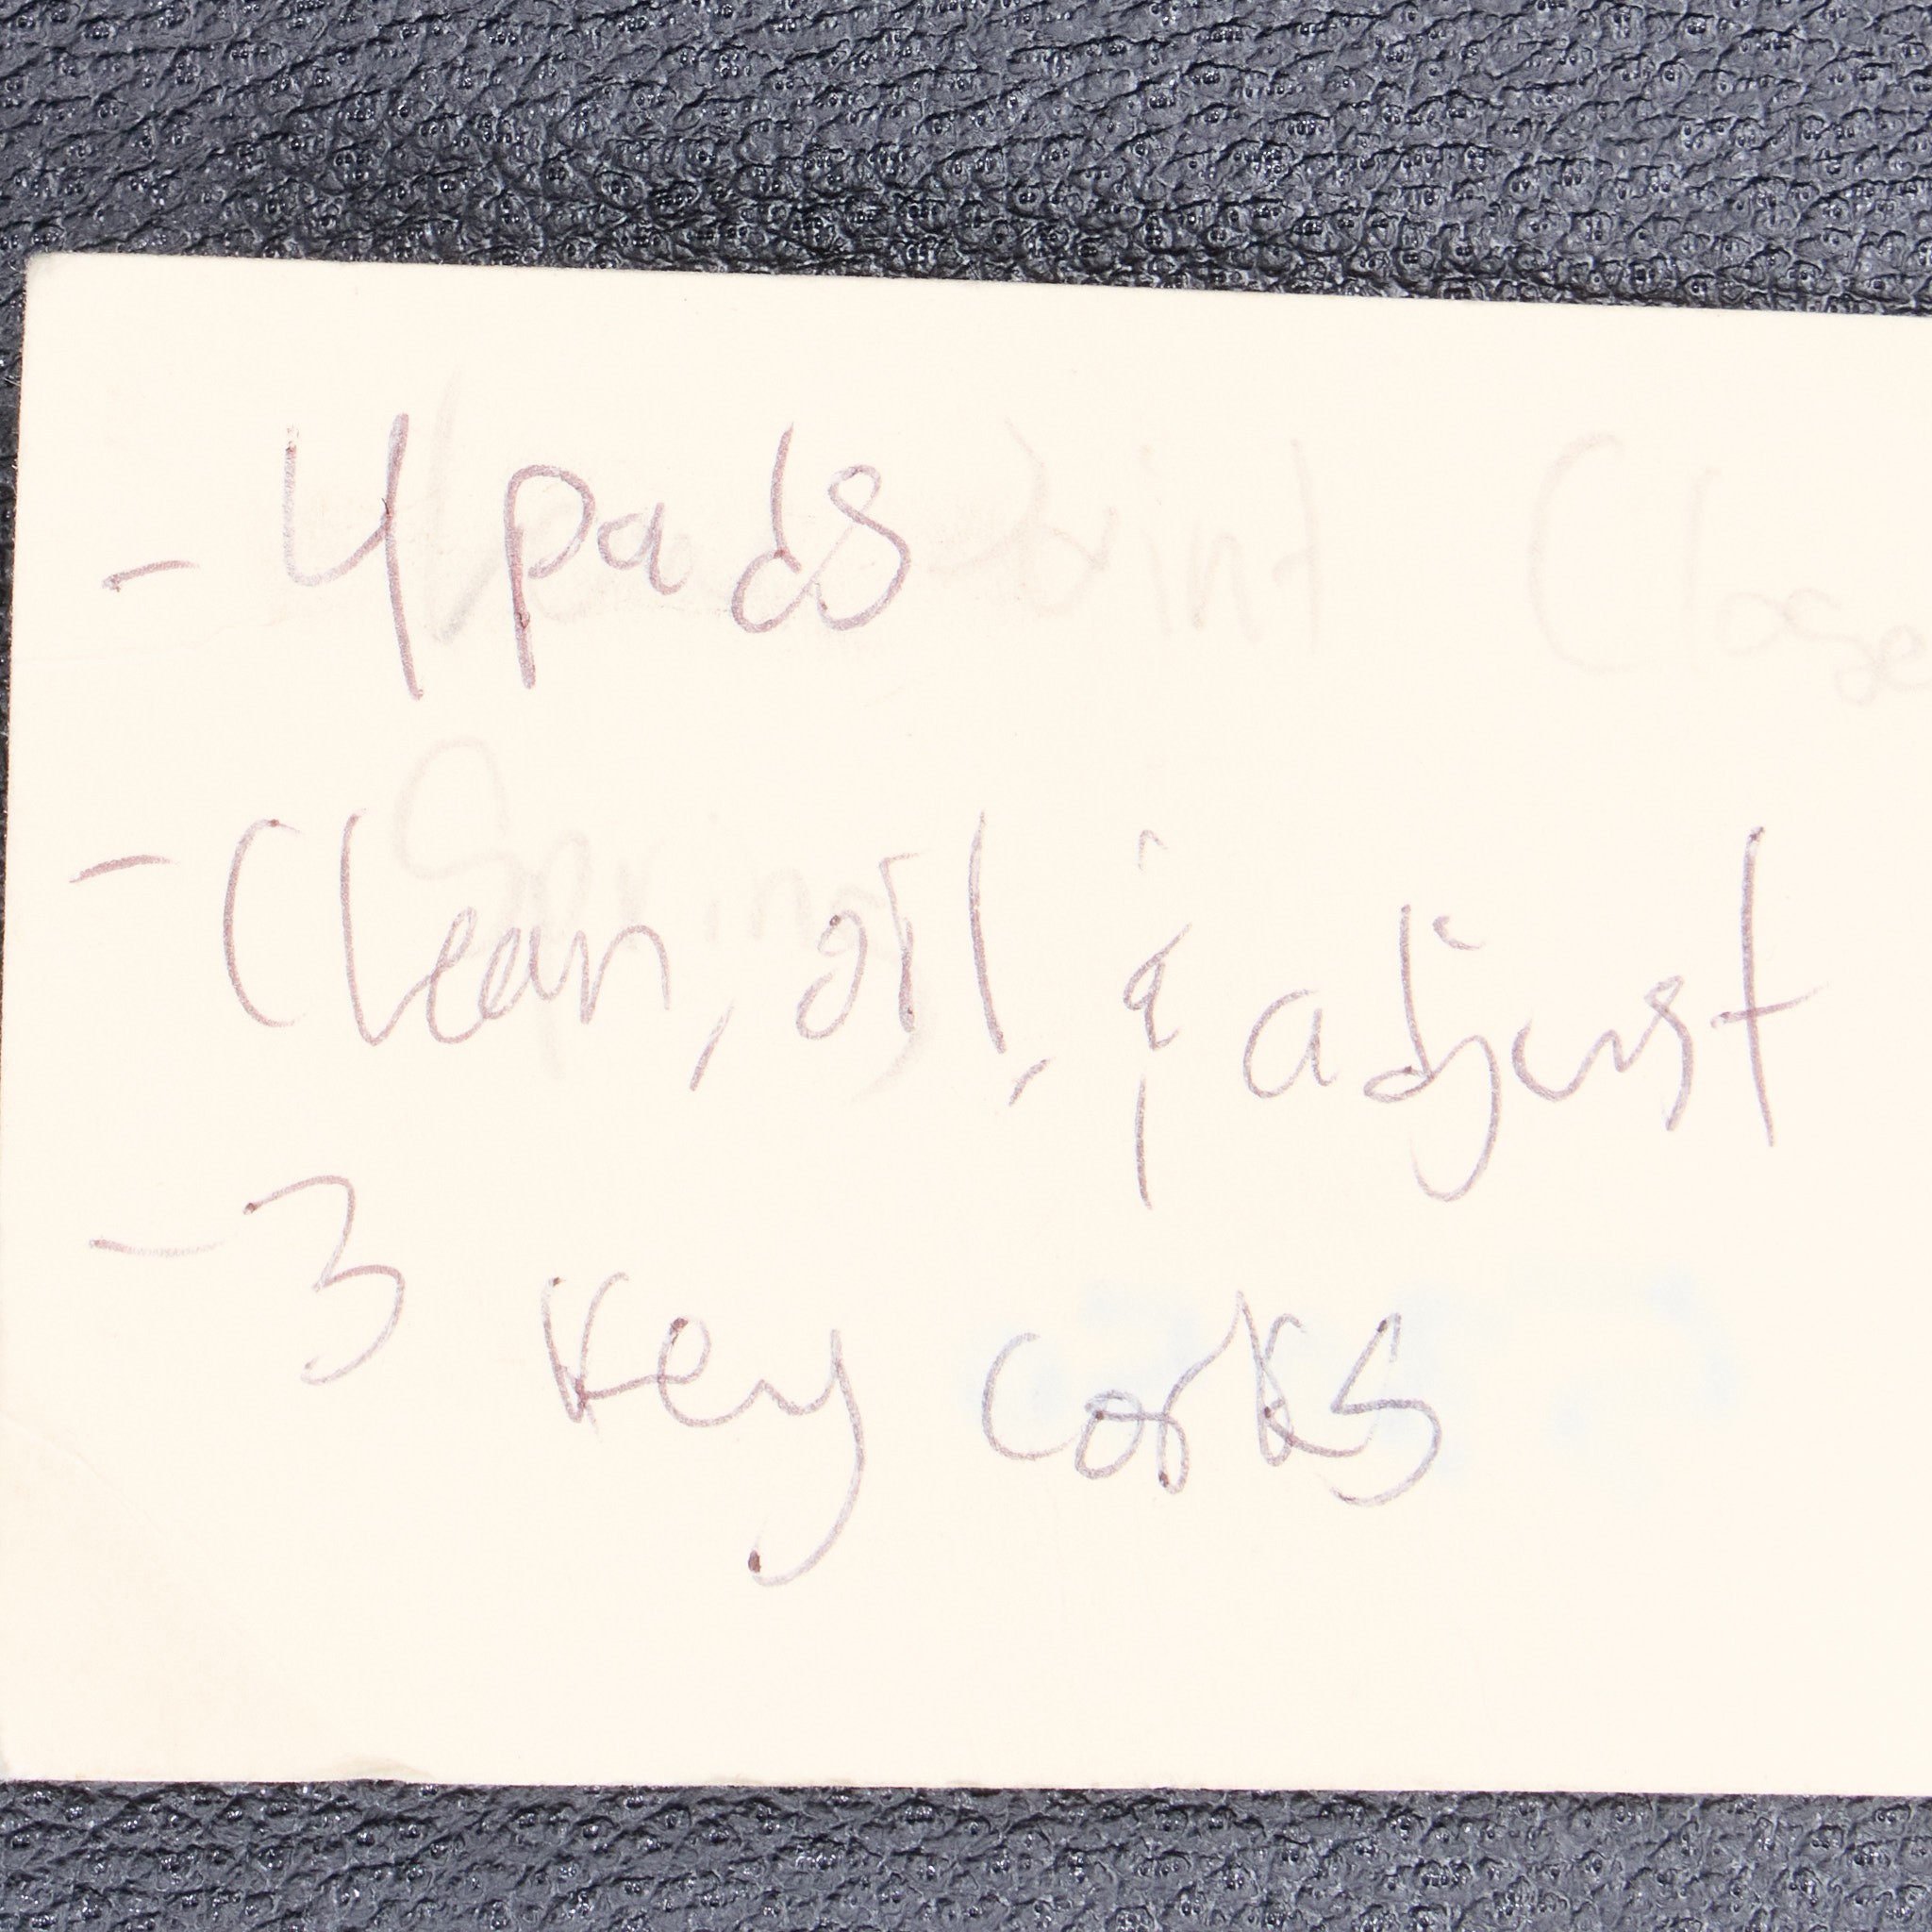 - 4 pads
- Clean, oil, & adjust
- 3 Key corks